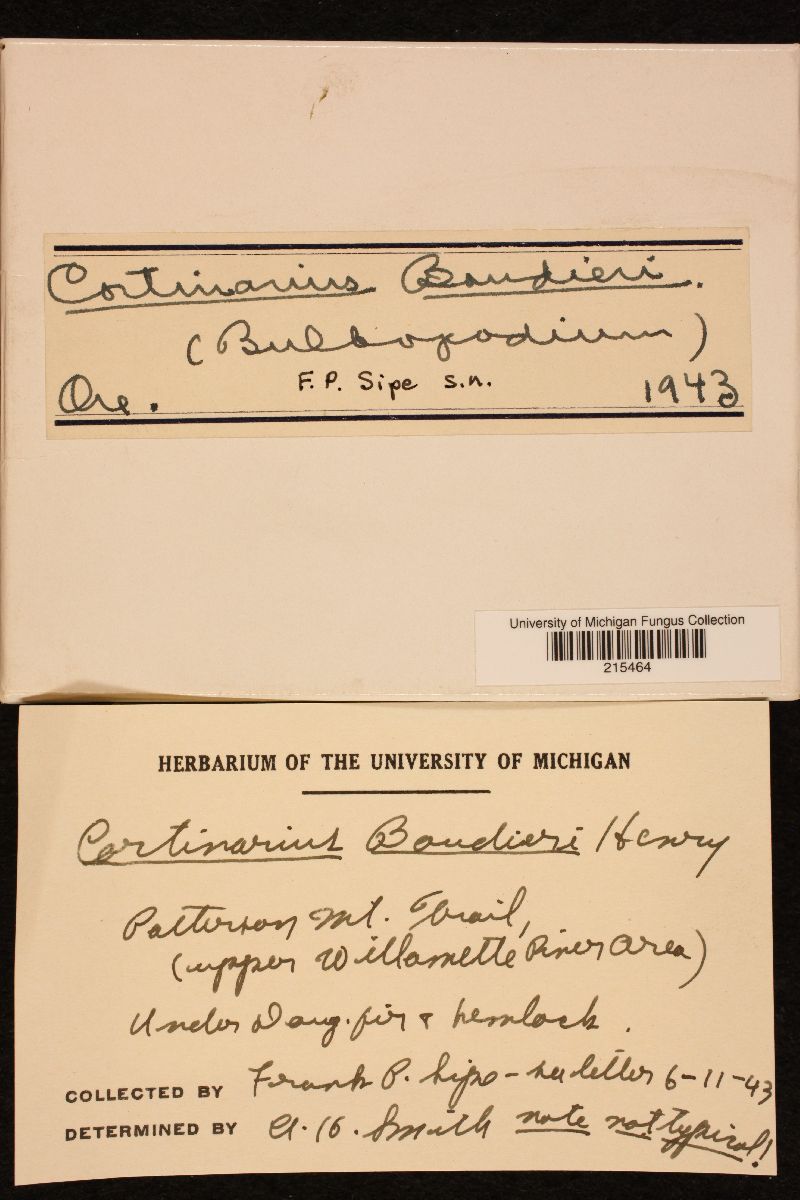 Cortinarius Boudieri.
(Bulbopodium)
Ore. F. P. Sipe s.n. 1943
University of Michigan Fungus Collection
215464
HERBARIUM OF THE UNIVERSITY OF MICHIGAN
Cortinarius Boudieri Henry
Patterson Mt. Trail,
(upper Willamette River area)
Under Doug. fir & hemlock.
COLLECTED BY Frank P. Sipe - see letter 6-11-43
DETERMINED BY A. H. Smith note not typical!